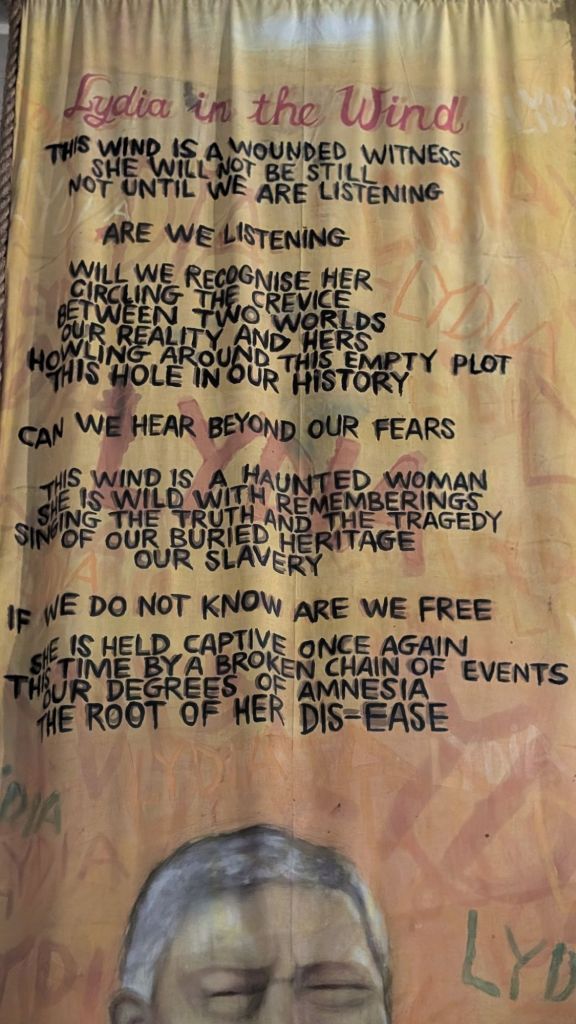 Lydia in the Wind
THIS WIND IS A WOUNDED WITNESS
SHE WILL NOT BE STILL
NOT UNTIL WE ARE LISTENING
ARE WE LISTENING
WILL WE RECOGNISE HER
CIRCLING THE CREVICE
BETWEEN TWO WORLDS
OUR REALITY AND HERS
HOWLING AROUND THIS EMPTY PLOT
THIS HOLE IN OUR HISTORY
CAN WE HEAR BEYOND OUR FEARS
THIS WIND IS A HAUNTED WOMAN
SHE IS WILD WITH REMEMBERINGS
SINGING THE TRUTH AND THE TRAGEDY
OF OUR BURIED HERITAGE
OUR SLAVERY
IF WE DO NOT KNOW ARE WE FREE
SHE IS HELD CAPTIVE ONCE AGAIN
THIS TIME BY A BROKEN CHAIN OF EVENTS
OUR DEGREES OF AMNESIA
THE ROOT OF HER DIS=EASE
LYDIA
LYDIA
LYDIA
LYDIA
LYDIA
LYD